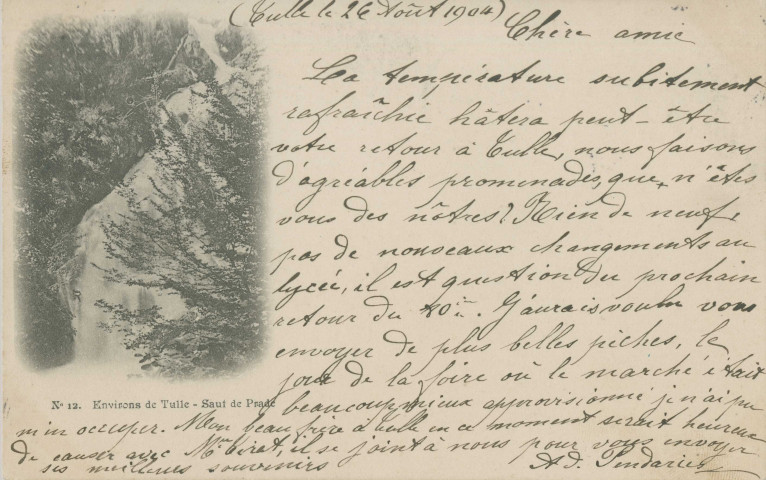 (Tulle le 26 Août 1904)
Chère amie
La température subitement
rafraîchie hâtera peut-être
votre retour à Tulle, nous faisons
d'agréables promenades, que n'êtes
vous des nôtres? Rien de neuf,
pas de nouveaux changements au
lycée, il est question du prochain
retour du 10e. J'aurais voulu vous
envoyer de plus belles pêches, le
jour de la foire où le marché était
beaucoup mieux approvisionné je n'ai pu
m'en occuper. Mon beau frère à Tulle en ce moment serait heureux
de causer avec Mr, il se joint à nous pour vous envoyer
ses meilleurs souvenirs
No 12. Environs de Tulle - Saut de Prade